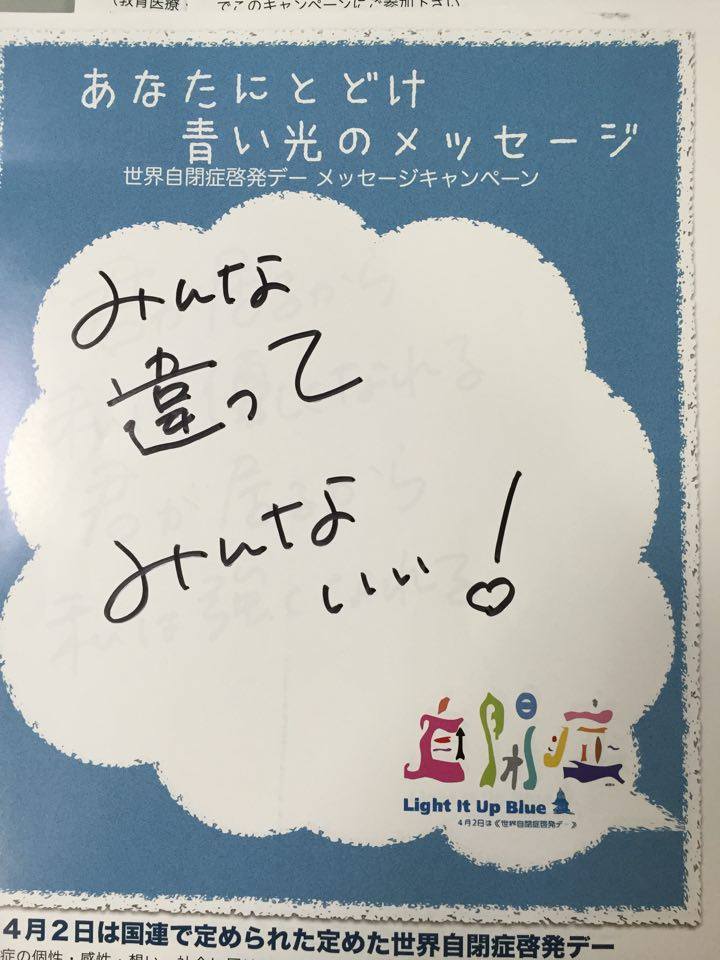 （教育医療・　でこのキャンペーンにご参加下さい
あなたにとどけ
青い光のメッセージ
世界自閉症啓発デー メッセージキャンペーン
みんな
違って
みんな
いい！
自閉症
Light It Up Blue
4月2日は《世界自閉症啓発デー》
4月2日は国連で定められた定めた世界自閉症啓発デー
症の個性・感性・想い